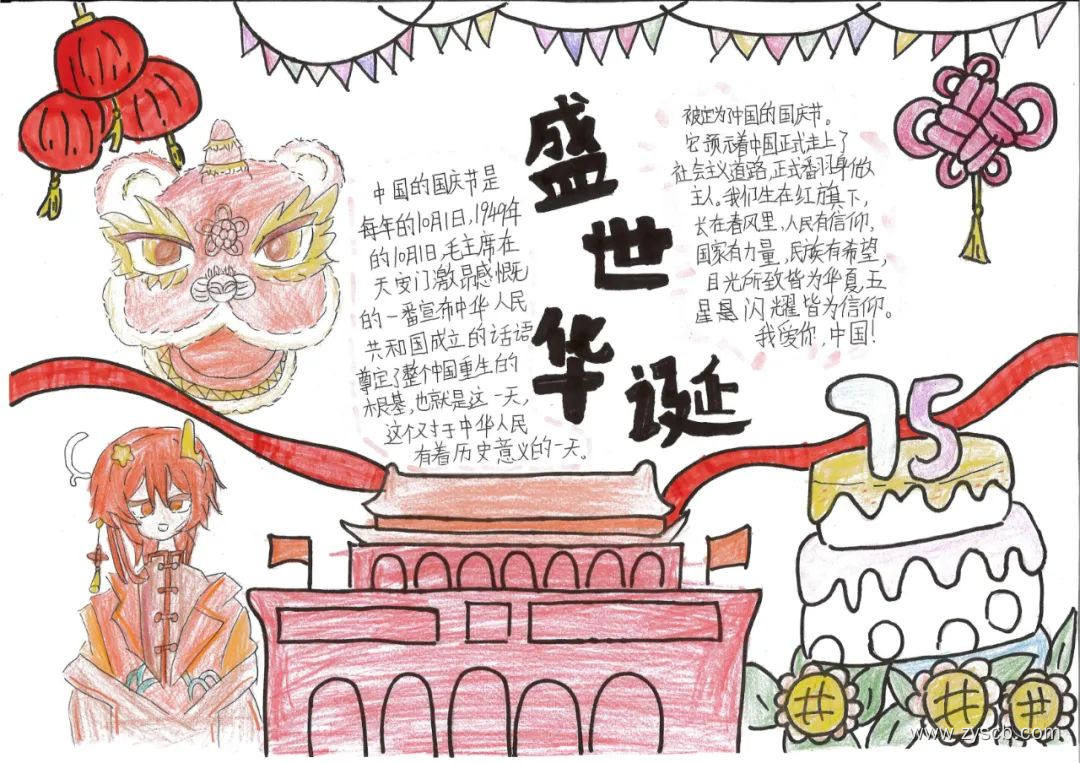 盛世
华诞
中国的国庆节是
每年的10月1日,1949年
的10月1日,毛主席在
天安门激昂感慨
的一番宣布中华人民
共和国成立的话语
尊定了整个中国重生的
根基,也就是这一天,
这个对于中华人民
有着历史意义的一天。
被定为中国的国庆节。
它预示着中国正式走上了
社会主义道路,正式翻身做
主人。我们生在红旗下,
长在春风里,人民有信仰,
国家有力量,民族有希望,
目光所致皆为华夏,五
星是闪耀皆为信仰。
我爱你,中国!
75
www.zyscb.com